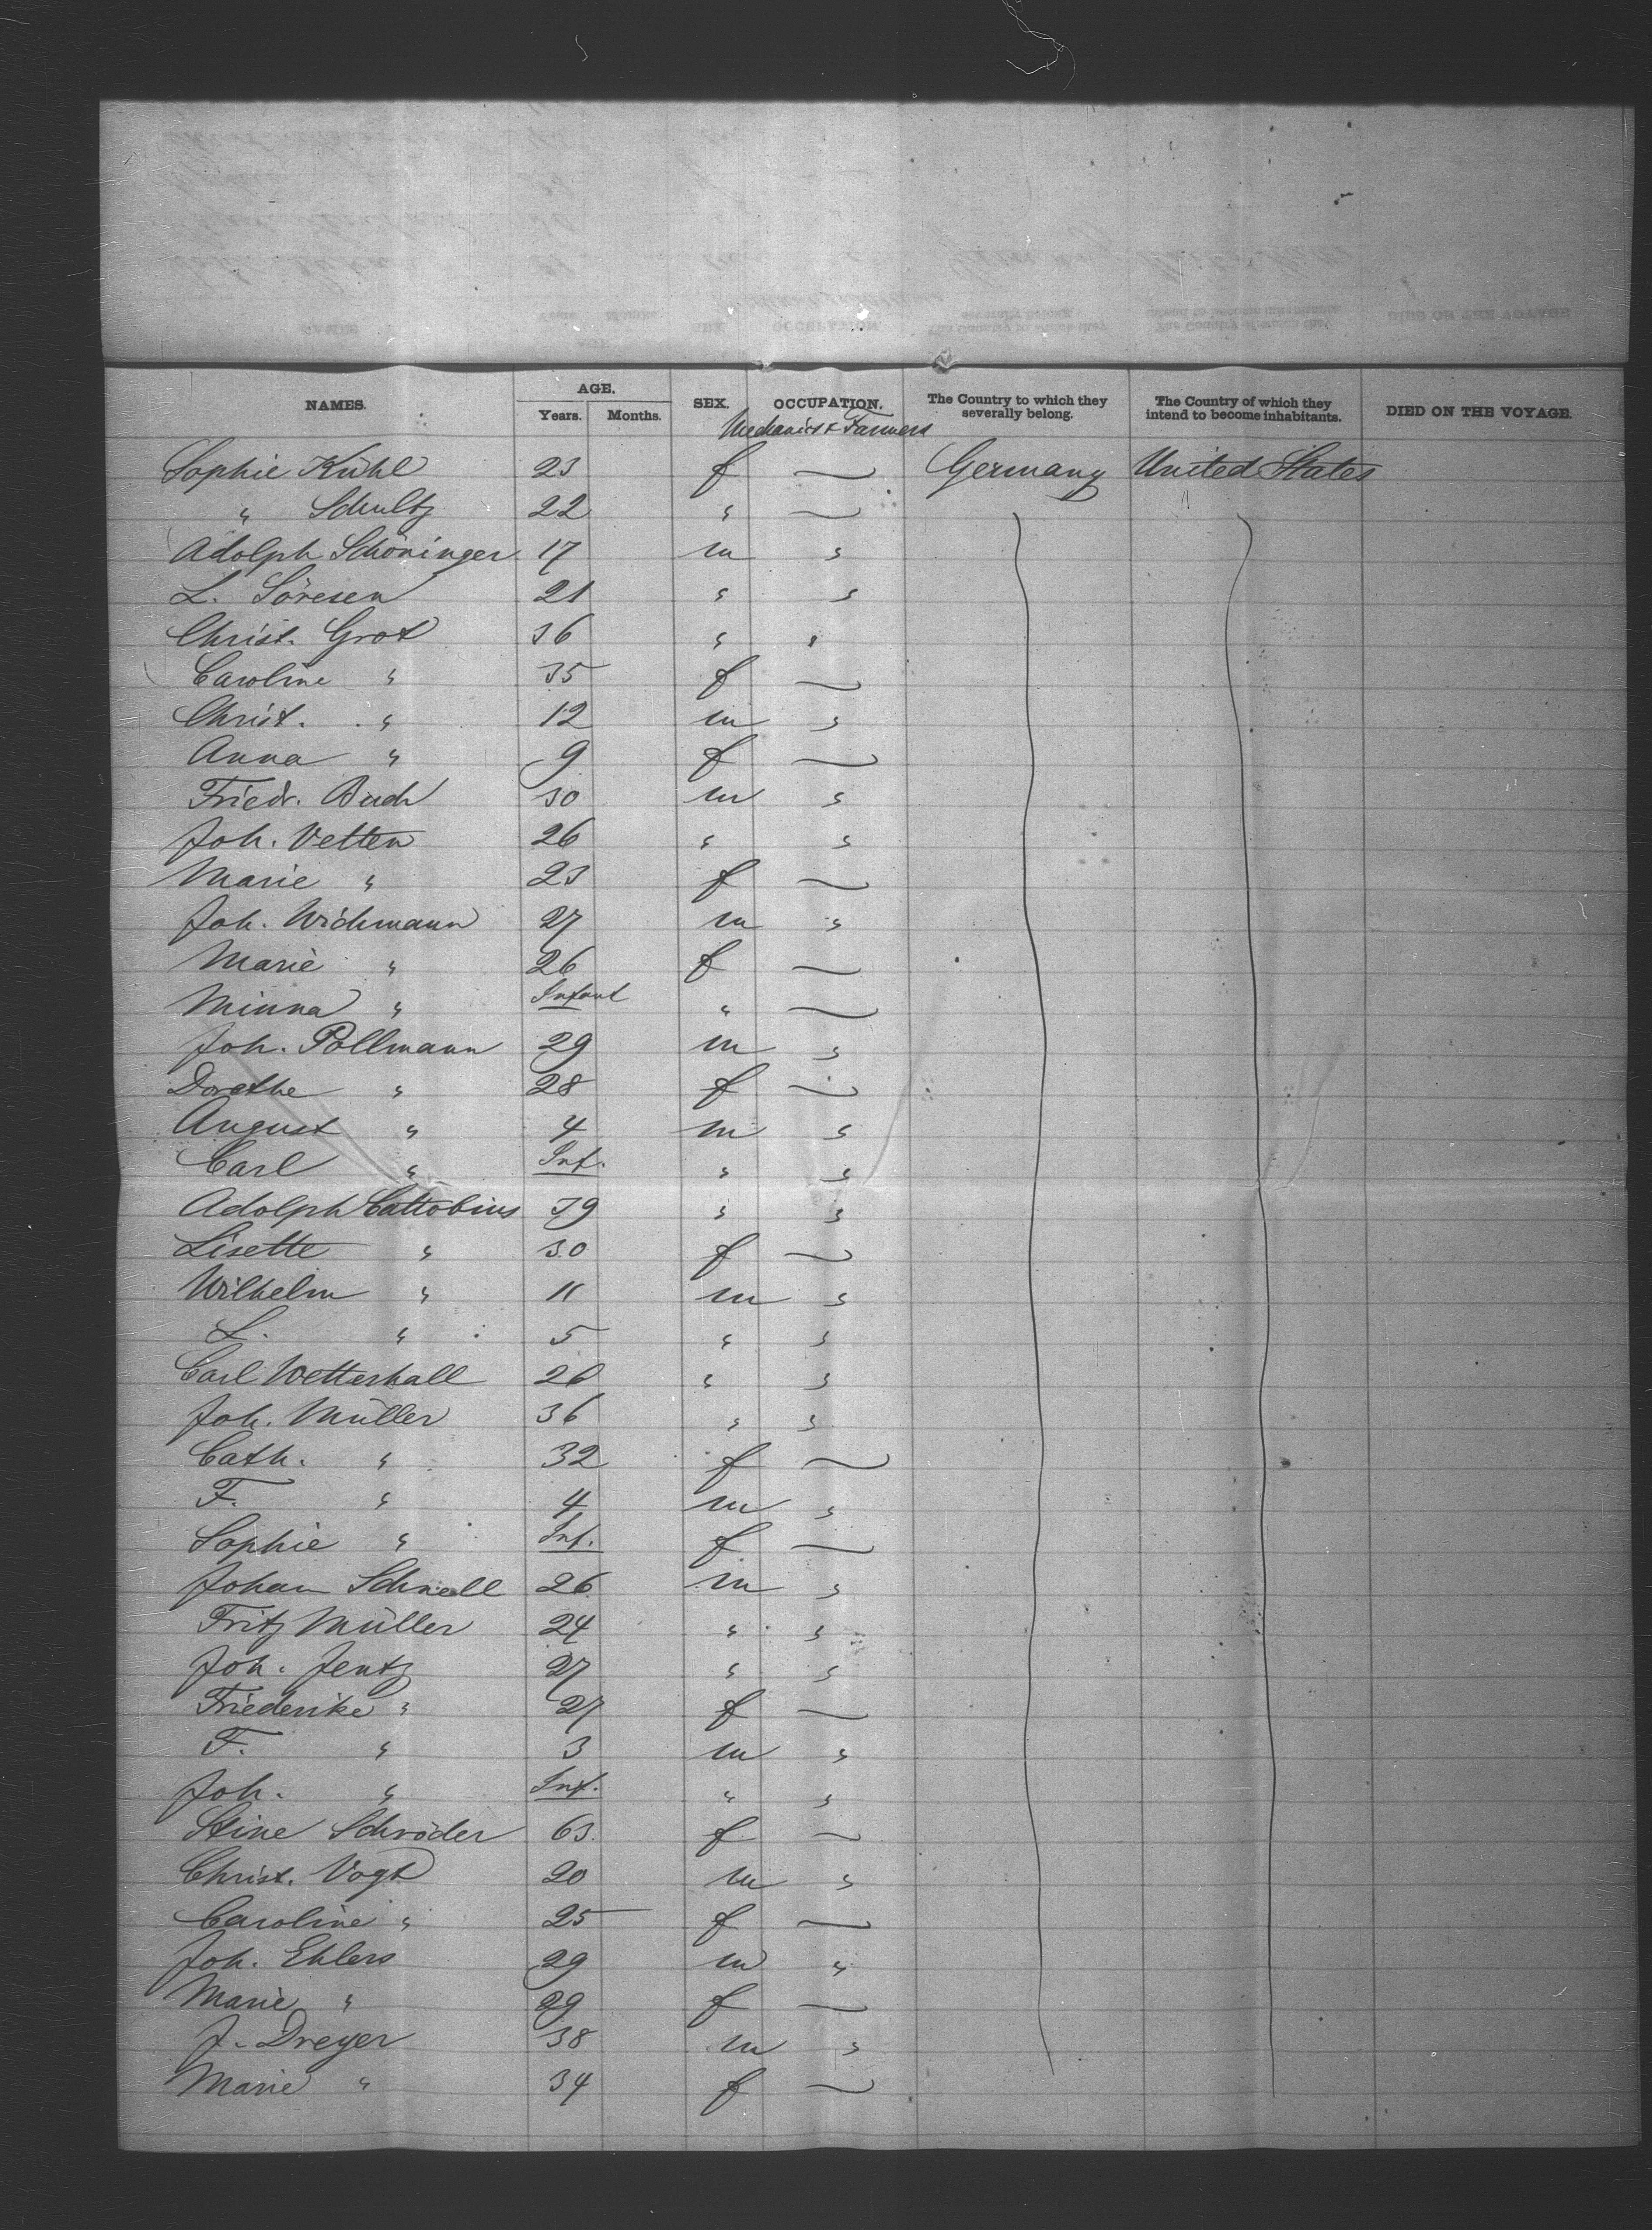 NAMES. AGE. Years. Months. SEX. OCCUPATION. The Country to which they severally belong. The Country of which they intend to become inhabitants. DIED ON THE VOYAGE.
Mechanics & Farmers
Sophie Kühl 23 f — Germany United States
" Schultz 22 " —
Adolph Schöninger 17 m "
L. Söresen 21 " "
Christ. Grot 36 " "
Caroline " 35 f —
Christ. " 12 m "
Anna " 9 f —
Friedr. Buch 30 m "
Joh. Vetten 26 " "
Marie " 23 f —
Joh. Wichmann 27 m "
Marie " 26 f —
Minna " Infant " —
Joh. Pollmann 29 m "
Dorothe " 28 f —
August " 4 m "
Carl " Inf. " "
Adolph Cattobius 39 " "
Lisette " 30 f —
Wilhelm " 11 m "
L. " 5 " "
Carl Wetterhall 26 " "
Joh. Müller 36 " "
Cath. " 32 f —
F. " 4 m "
Sophie " Inf. f —
Johan Schnell 26 m "
Fritz Müller 24 " "
Joh. Jentz 27 " "
Friederike " 27 f —
F. " 3 m "
Joh. " Inf. " "
Stine Schröder 63 f —
Christ. Vogt 20 m "
Caroline " 25 f —
Joh. Ehlers 29 m "
Marie " 29 f —
J. Dreyer 38 m "
Marie " 34 f —